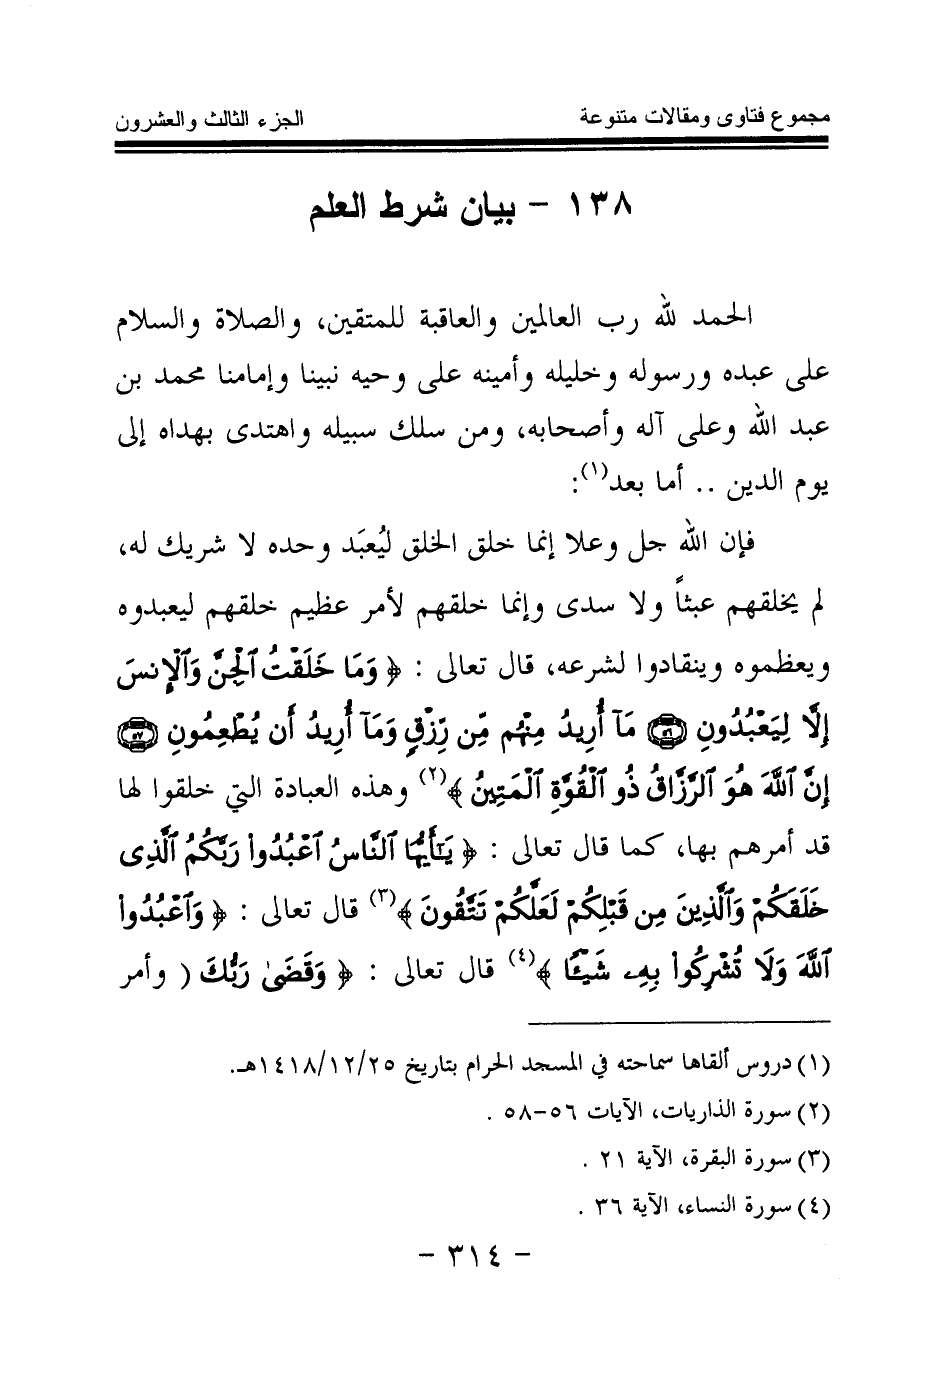 مجموع فتاوى ومقالات متنوعة الجزء الثالث والعشرون
١٣٨ – بيان شرط العلم
الحمد لله رب العالمين والعاقبة للمتقين، والصلاة والسلام
على عبده ورسوله وخليله وأمينه على وحيه نبينا وإمامنا محمد بن
عبد الله وعلى آله وأصحابه، ومن سلك سبيله واهتدى بهداه إلى
يوم الدين .. أما بعد(١):
فإن الله جل وعلا إنما خلق الخلق ليُعبَد وحده لا شريك له،
لم يخلقهم عبثاً ولا سدى وإنما خلقهم لأمر عظيم خلقهم ليعبدوه
ويعظموه وينقادوا لشرعه، قال تعالى : ﴿ وَمَا خَلَقْتُ ٱلْجِنَّ وَٱلْإِنسَ
إِلَّا لِيَعْبُدُونِ ۝٥٦ مَآ أُرِيدُ مِنْهُم مِّن رِّزْقٍ وَمَآ أُرِيدُ أَن يُطْعِمُونِ ۝٥٧
إِنَّ ٱللَّهَ هُوَ ٱلرَّزَّاقُ ذُو ٱلْقُوَّةِ ٱلْمَتِينُ ﴾(٢) وهذه العبادة التي خلقوا لها
قد أمرهم بها، كما قال تعالى : ﴿ يَٰٓأَيُّهَا ٱلنَّاسُ ٱعْبُدُوا۟ رَبَّكُمُ ٱلَّذِى
خَلَقَكُمْ وَٱلَّذِينَ مِن قَبْلِكُمْ لَعَلَّكُمْ تَتَّقُونَ ﴾(٣) قال تعالى : ﴿ وَٱعْبُدُوا۟
ٱللَّهَ وَلَا تُشْرِكُوا۟ بِهِۦ شَيْـًٔا ﴾(٤) قال تعالى : ﴿ وَقَضَىٰ رَبُّكَ ( وأمر
(١) دروس ألقاها سماحته في المسجد الحرام بتاريخ ١٤١٨/١٢/٢٥هـ.
(٢) سورة الذاريات، الآيات ٥٦–٥٨ .
(٣) سورة البقرة، الآية ٢١ .
(٤) سورة النساء، الآية ٣٦ .
– ٣١٤ –